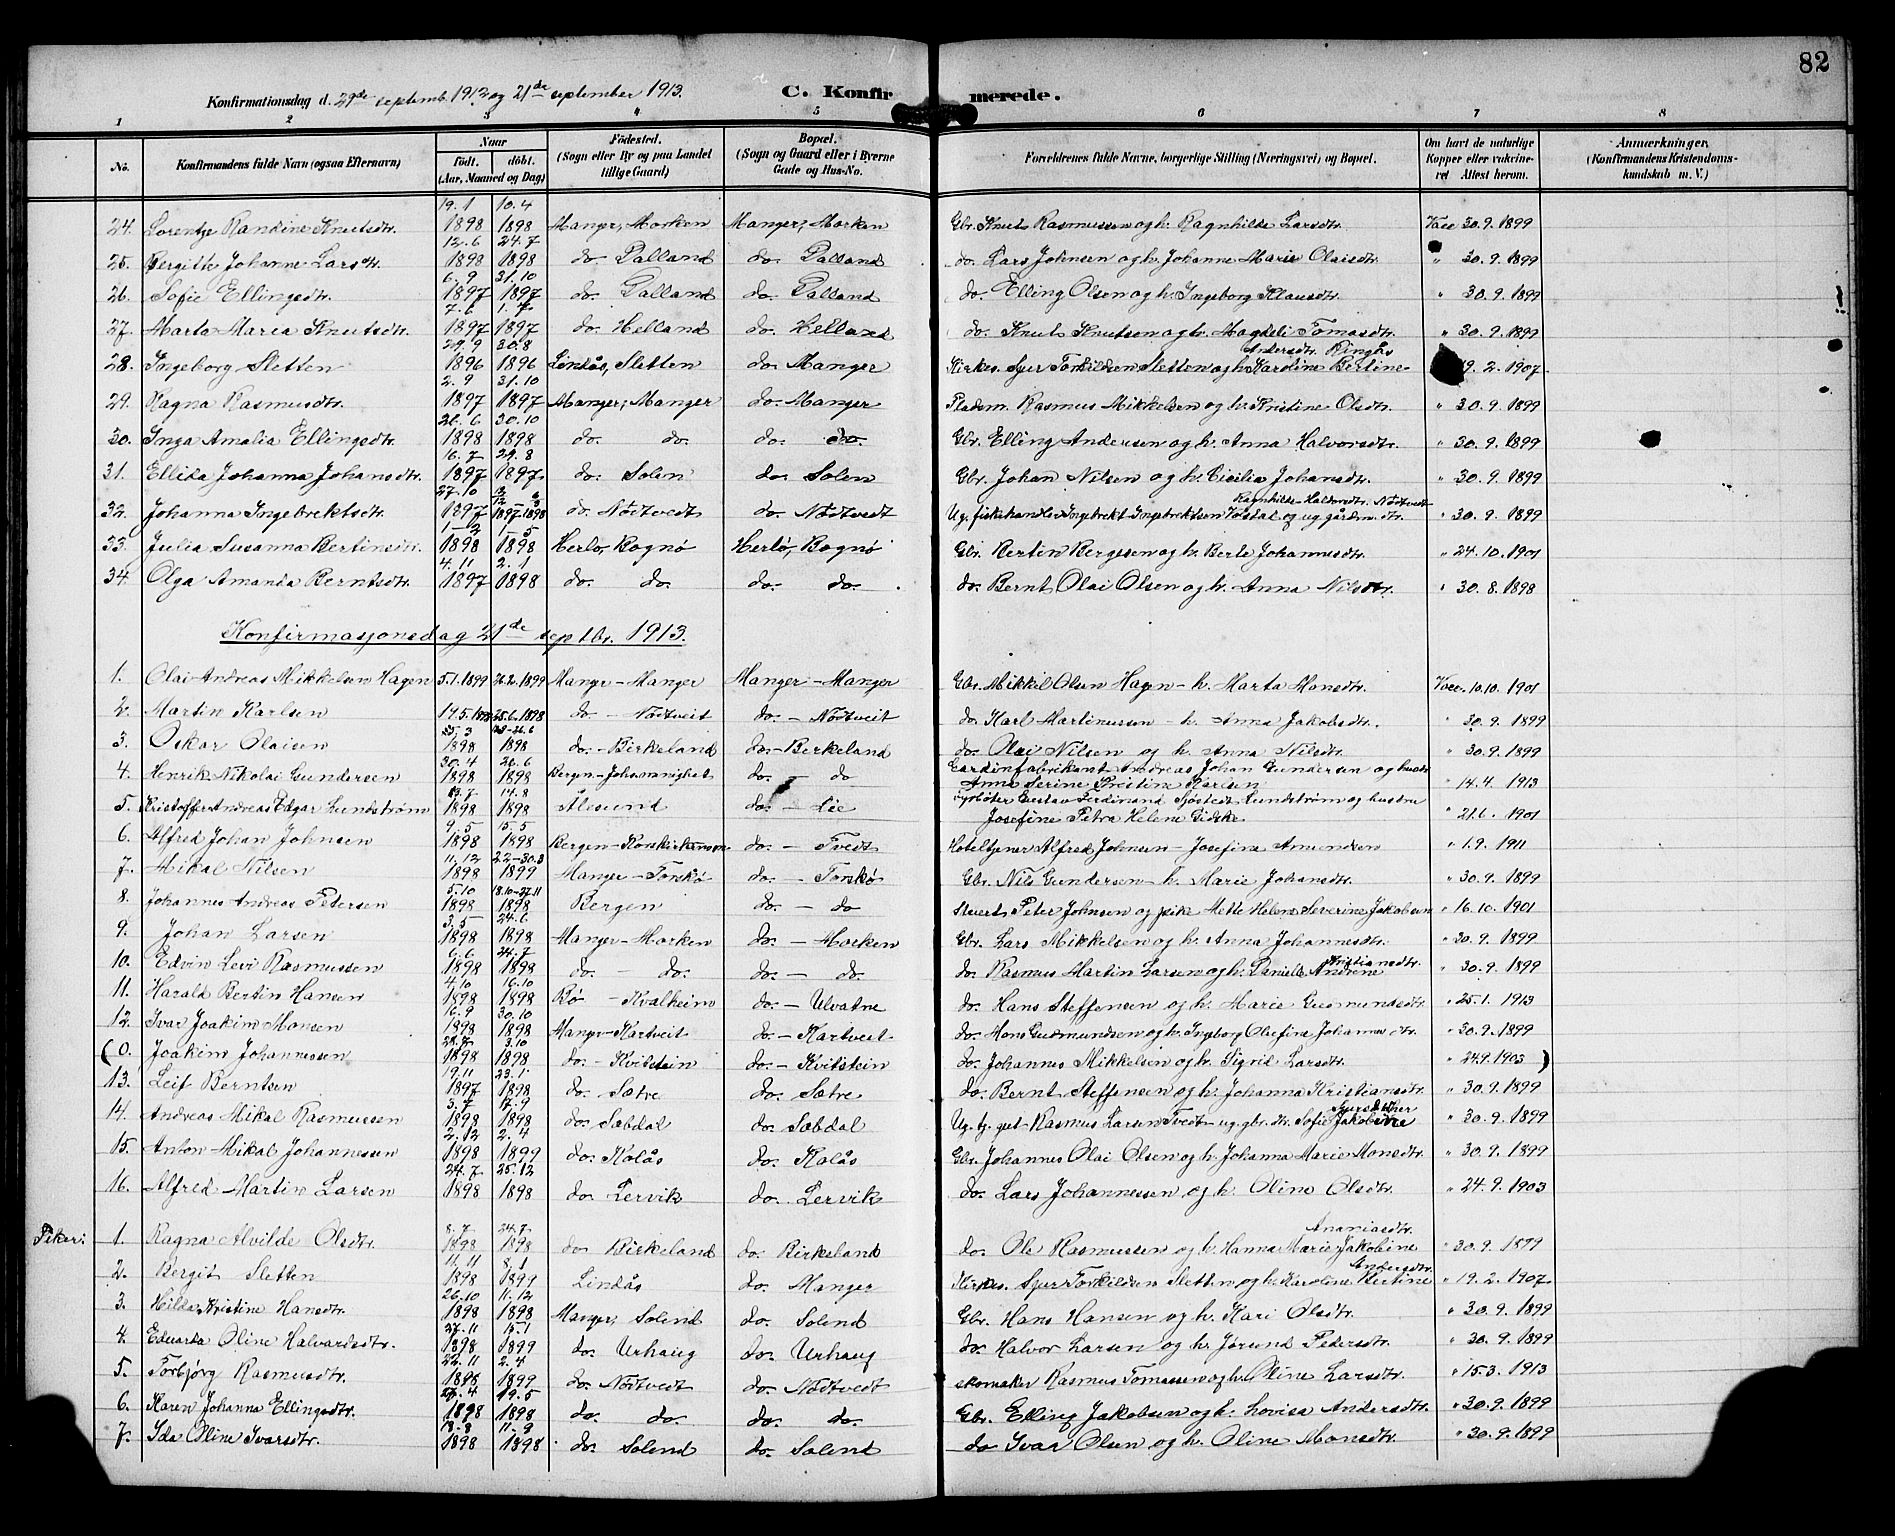 82
Konfirmationsdag d. 29de septemb. 1912 og 21de september 1913. C. Konfirmerede.
1 2 3 4 5 6 7 8
No. Konfirmandens fulde Navn (ogsaa Efternavn) Naar født. døbt. (Aar, Maaned og Dag) Fødested. (Sogn eller By og paa Landet tillige Gaard) Bopæl. (Sogn og Gaard eller i Byerne Gade og Hus-No. Forældrenes fulde Navne, borgerlige Stilling (Næringsvei) og Bopæl. Om havt de naturlige Kopper eller vakcineret Attest herom. Anmærkninger. (Konfirmandens Kristendomskundskab m. V.)
24. Lorentze Randine Knutsdtr. 19.1 1898 10.4 1898 Manger, Morken Manger, Morken Gbr. Knut Rasmussen og h. Ragnhilde Larsdtr. Vacc 30.9.1899
25. Bergitte Johanne Larsdtr. 12.6 1898 24.7 1898 do. Palland do. Palland do. Lars Johnsen og h. Johanne Marie Olaisdtr. " 30.9.1899
26. Sofie Ellingsdtr. 6.9 1897 31.10 1897 do. Palland do. Palland do. Elling Olsen og h. Ingeborg Klausdtr. " 30.9.1899
27. Marta Maria Knutsdtr. 7.6 1897 1.7 1897 do. Helland do. Helland do. Knut Knutsen og h. Magdeli Tomasdtr. " 30.9.1899
28. Ingeborg Sletten 29.9 1896 30.8 1896 Lindås, Sletten do. Manger Kirkes. Sjur Torkildsen Sletten og h. Kardine Bertine Andersdtr. Ringås 19.2.1907.
29. Ragna Rasmusdtr. 2.9 1897 31.10 1897 Manger, Manger do. Manger Pladsm. Rasmus Mikkelsen og h. Kristine Olsdtr. " 30.9.1899
30. Inga Amalia Ellingsdtr. 26.6 1898 30.10 1898 do. do. do. do. Gbr. Elling Andersen og h. Anna Halvorsdtr. " 30.9.1899
31. Ellida Johanna Johansdtr. 16.7 1897 29.8 1897 do. Solen do. Solen Gbr. Johan Nilsen og h. Cicilia Johansdtr. " 30.9.1899
32. Johanna Ingebrektsdtr. 27.10 1897 1897-1898 do. Nødtvedt do. Nødtvedt Ug. fiskehandler Ingebrekt Ingebrektsen og ug. gårdm.dtr. Ragnhilde Haldorsdtr. Nødtvedt " 30.9.1899
33. Julia Susanna Bertinsdtr. 1-2 1898 1-5 1898 Herlø, Bognø Herlø, Bognø Gbr. Bertin Bergesen og h. Berte Johannesdtr. " 24.10.1901
34. Olga Amanda Berntsdtr. 4.11 1897 2.1 1898 do. do. do. do. do. Bernt Olai Olsen og h. Anna Nilsdtr. " 30.8.1898
Konfirmasjonsdag 21de septbr. 1913.
1. Olai Andreas Mikkelsen Hagen 5.1.1899 26.2.1899 Manger - Manger Manger - Manger Gbr. Mikkel Olsen Hagen - h. Marta Monsdtr. Vacc. 10.10.1901
2. Martin Karlsen 14.5.1898 25.6.1898 do - Nødtveit do. - Nødtveit do. Karl Martinussen - h. Anna Jakobsdtr. " 30.9.1899
3. Oskar Olaisen 25.3 1898 1898 do. - Birkeland do. - Berkeland do. Olai Nilsen og h. Anna Nilsdtr. " 30.9.1899
4. Henrik Nikolai Gundersen 30.4 1898 26.6 1898 Bergen - Johannighet do. - do Gardinfabrikant Andreas Johan Gundersen og hustr. Anna Serine Kristine Karlsen " 14.4.1913
5. Kristoffer Andreas Edgar Lundstrøm 13.7 1898 14.8 1898 Ålesund do. - Lie Fyrbøter Gustav Ferdinand Sjøstedt Lundstrøm og hustru Josefine Petra Helene Giske " 21.6.1901
6. Alfred Johan Johnsen 9.5 1898 15.5 1898 Bergen - Korskirkens do. - Tvedt Hoteltjener Alfred Johnsen - Josefine Amundsen " 1.9.1911
7. Mikal Nilsen 11.12 1898 22-30.3 1899 Manger - Torskø do - Torskø Gbr. Nils Gundersen - h. Marie Johansdtr. " 30.9.1899
8. Johannes Andreas Pedersen 5.10 1898 18.10-27.11 1898 Bergen do. - do Stuert Peter Johnsen og pike Mette Helene Severine Jakobsen " 16.10.1901
9. Johan Larsen 3.5 1898 24.6 1898 Manger - Morken do. - Morken Gbr. Lars Mikkelsen og h. Anna Johannesdtr. " 30.9.1899
10. Edvin Levi Rasmussen 6.6 1898 24.7 1898 do. - do. do. - do. do. Rasmus Martin Larsen og h. Daniella Andrine Kristiansdtr. " 30.9.1899
11. Harald Bertin Hansen 4.10 1898 16.10 1898 Bø - Kvalheim do. - Ulvatne do. Hans Steffensen og h. Marie Gudmundsdtr. " 25.1.1913
12. Ivar Joakim Monsen 16.9 1898 30.10 1898 Manger - Kartveit do. - Kartveit do. Mons Gudmundsen og h. Ingborg Olefina Johannesdtr. " 30.9.1899
(0. Joakim Johannessen 1898 3.10 1898 do. - Kvitstein do. - Kvitstein do. Johannes Mikkelsen og h. Sigrid Larsdtr. " 24.9.1903 )
13. Leif Berntsen 19.11 1897 23.1 1898 do. Sætre do. Sætre do. Bernt Steffensen og h. Johanna Kristiansdtr. " 30.9.1899
14. Andreas Mikal Rasmussen 3.7 1898 17.9 1898 do. Sæbdal do. Sæbdal Ug. tj. gut Rasmus Larsen Tvedt - ug. gbr. dtr. Sofie Jakobine " 30.9.1899
15. Anton Mikal Johannessen 2.12 1898 2.4 1899 do. Kolås do. Kolås Gbr. Johannes Olai Olsen og h. Johanna Marie Monsdtr. " 30.9.1899
16. Alfred Martin Larsen 24.7 1898 25.12 1898 do. Lervik do. Lervik do. Lars Johannessen og h. Oline Olsdtr. " 24.9.1903
Piker:
1. Ragna Alvilde Olsdtr. 8.7 1898 24.7 1898 do. Birkeland do. Birkeland do. Ole Rasmussen og h. Hanna Marie Jakobine Ananiasdtr. " 30.9.1899
2. Bergit Sletten 11.11 1898 8.1 1899 Lindås do. Manger Kirkes. Sjur Torkildsen Sletten og h. Karoline Bertine Andersdtr. " 19.2.1907.
3. Hilda Kristine Hansdtr. 26.10 1898 11.12 1898 Manger, Solend do. Solend Gbr. Hans Hansen og h. Kari Olsdtr. " 30.9.1899
4. Edvarda Oline Halvardsdtr. 27.11 1898 15.1 1899 do. Urhaug do. Urhaug do. Halvor Larsen og h. Jørund Pedersdtr. " 30.9.1899
5. Torbjørg Rasmusdtr. 22.11 1898 2.4 1899 do. Nødtvedt do. Nødtvedt skomaker Rasmus Tomassen og h. Oline Larsdtr. " 15.3.1913
6. Karen Johanna Ellingsdtr. 27.4 1898 19.5 1898 do. do. do. do. Gbr. Elling Jakobsen og h. Lovisa Andersdtr. " 30.9.1899
7. Ida Oline Ivarsdtr. 18.8 1898 11.9 1898 do. Solend do. Solend do Ivar Olsen og h. Oline Monsdtr. " 30.9.1899